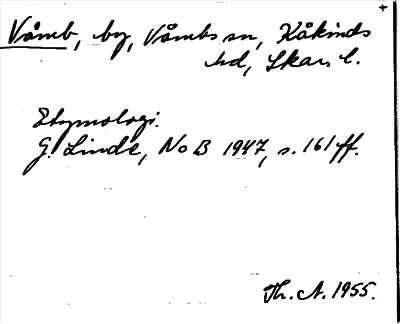 Våmb, by, Våmbs sn, Kåkinds
hd, Skar. l.
Etymologi.
G. Linde, NoB 1947, s. 161 ff.
Th. A. 1955.